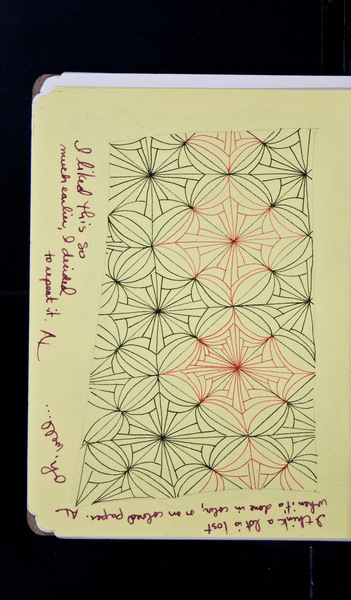 I liked this so
much earlier, I decided
to repeat it. AL
oh, well...
I think a lot is lost
when it's done in color, or on colored paper. AL